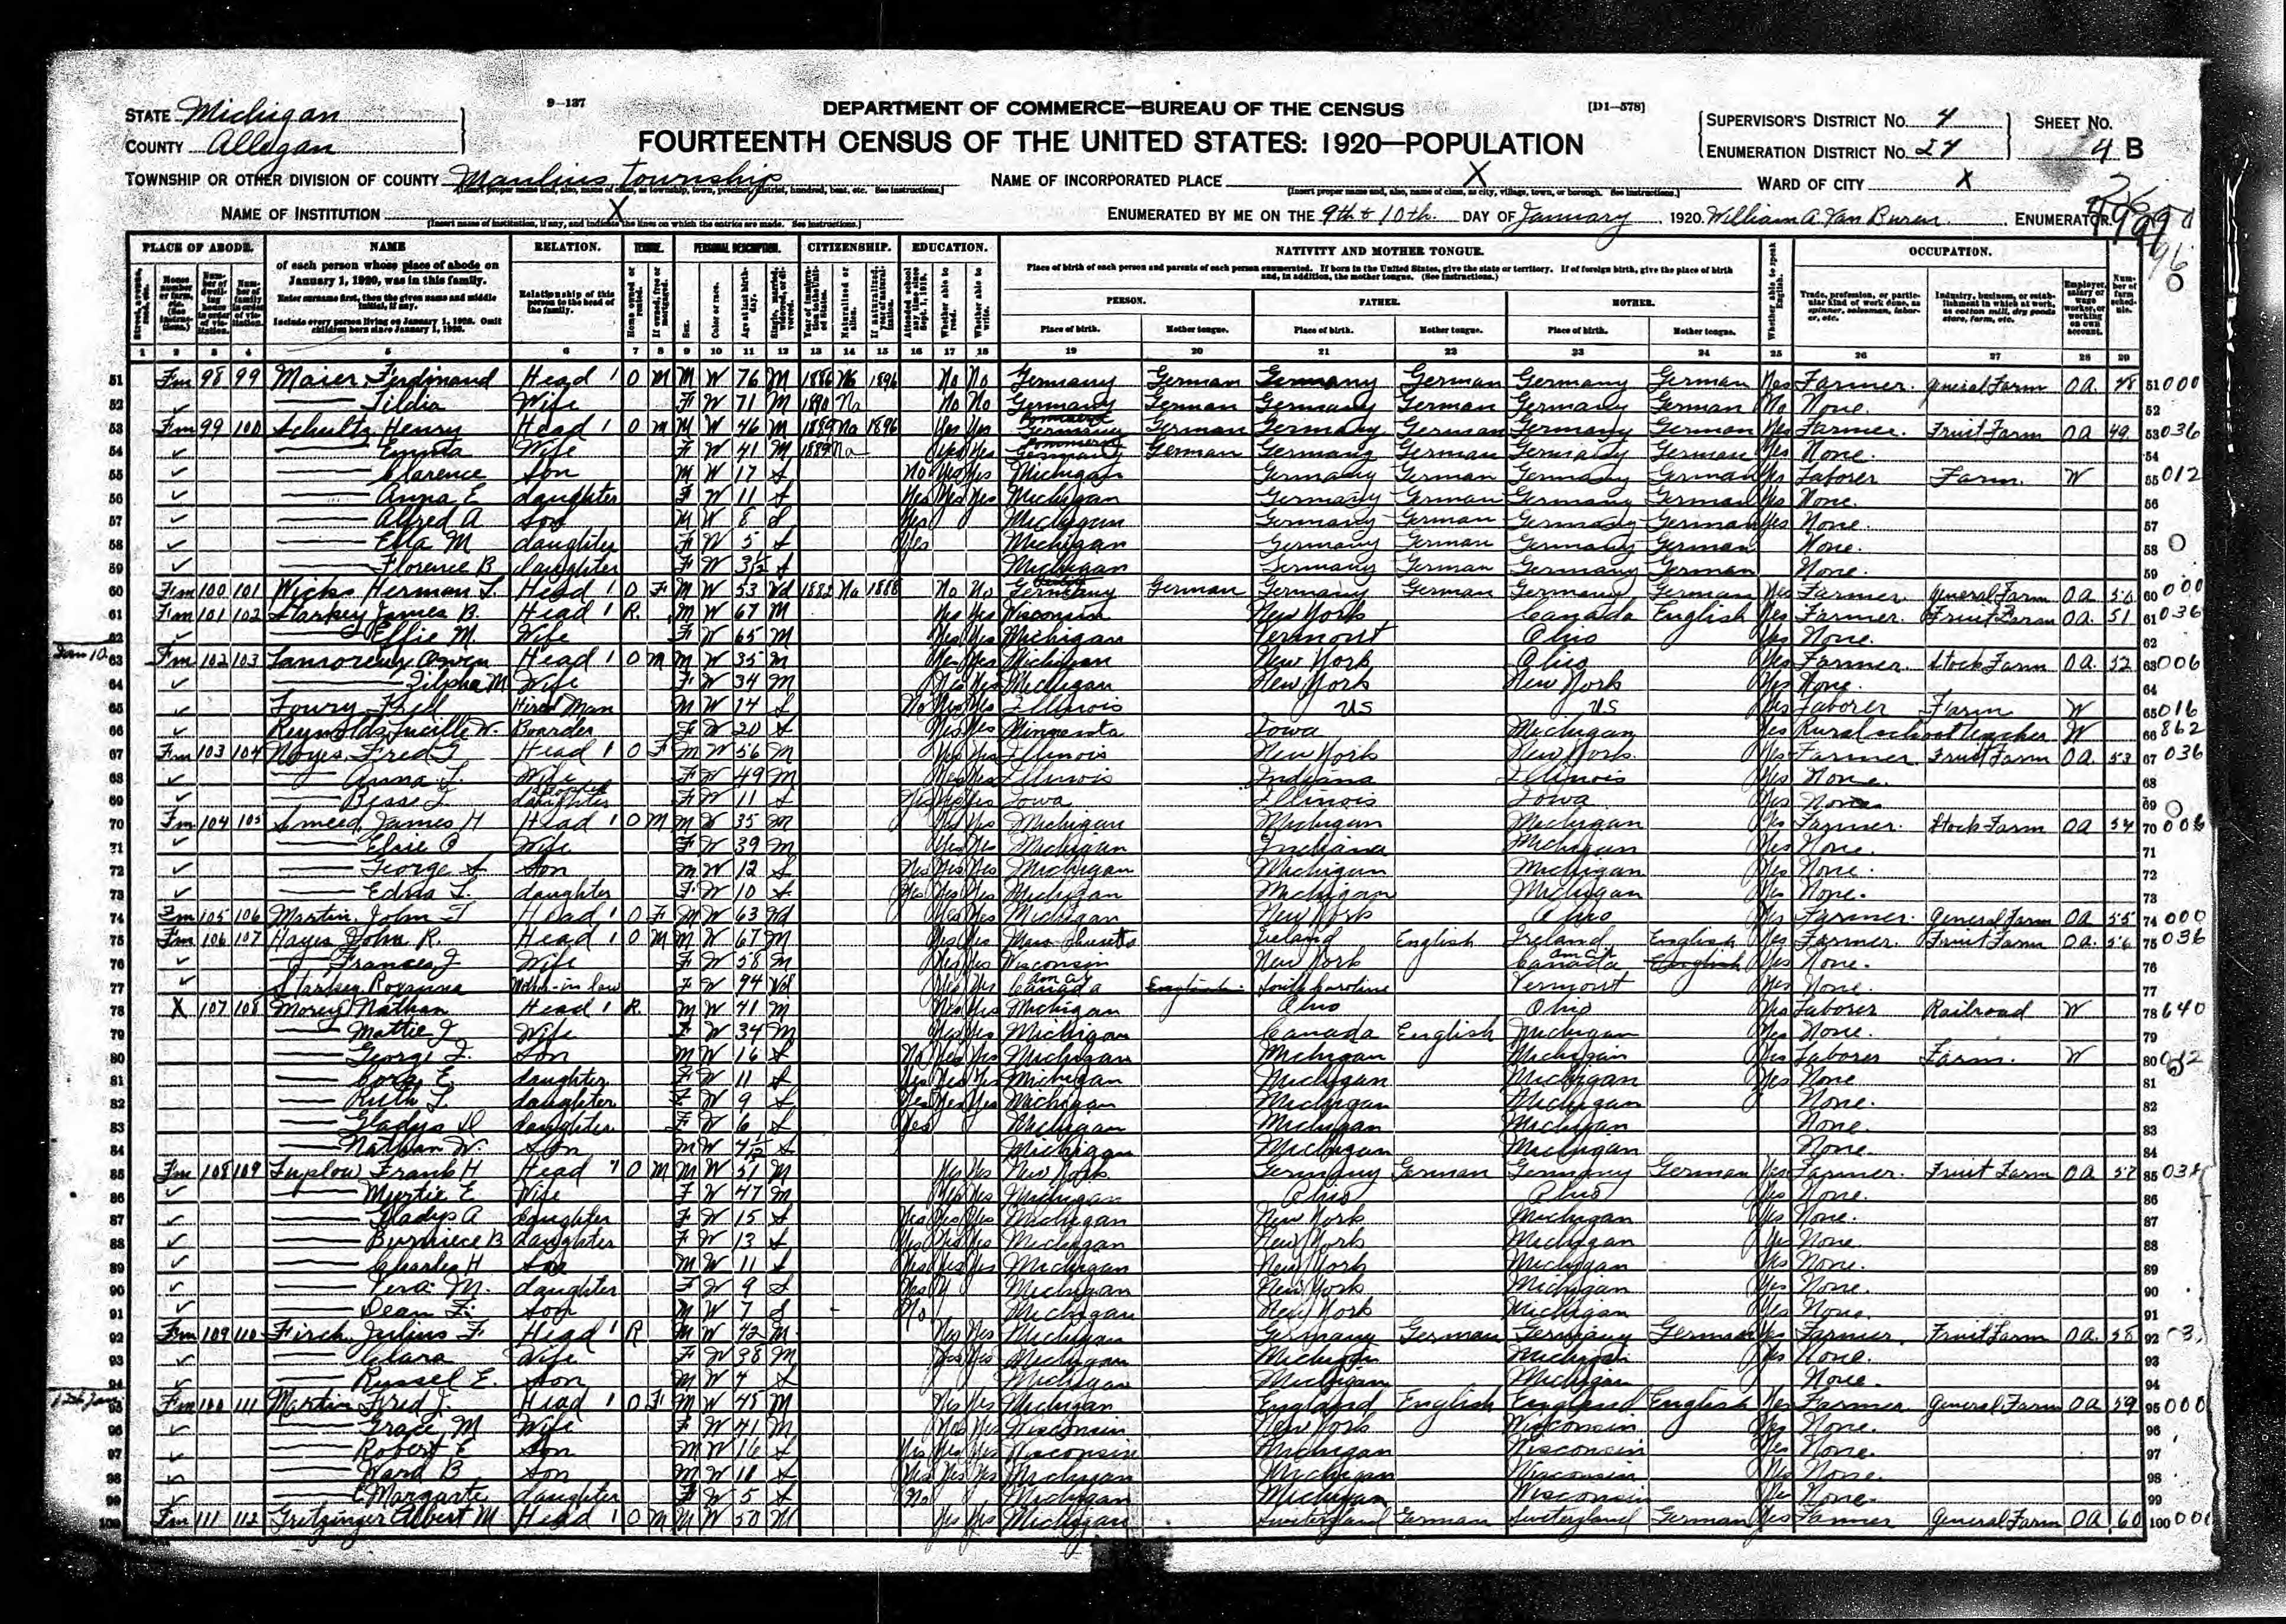 9—137
DEPARTMENT OF COMMERCE—BUREAU OF THE CENSUS
[D1—578]
STATE Michigan
COUNTY Allegan
FOURTEENTH CENSUS OF THE UNITED STATES: 1920—POPULATION
SUPERVISOR'S DISTRICT NO. 4
ENUMERATION DISTRICT NO. 27
SHEET NO. 4 B
TOWNSHIP OR OTHER DIVISION OF COUNTY Manlius Township
NAME OF INCORPORATED PLACE X
WARD OF CITY X
NAME OF INSTITUTION X
ENUMERATED BY ME ON THE 9th & 10th DAY OF January, 1920. William A Van Buren, ENUMERATOR.
PLACE OF ABODE. NAME RELATION. TENURE. PERSONAL DESCRIPTION. CITIZENSHIP. EDUCATION. NATIVITY AND MOTHER TONGUE. OCCUPATION.
of each person whose place of abode on January 1, 1920, was in this family.
Enter surname first, then the given name and middle initial, if any.
Include every person living on January 1, 1920. Omit children born since January 1, 1920.
Relationship of this person to the head of the family.
Place of birth of each person and parents of each person enumerated. If born in the United States, give the state or territory. If of foreign birth, give the place of birth and, in addition, the mother tongue. (See Instructions.)
PERSON. FATHER. MOTHER.
Place of birth. Mother tongue. Place of birth. Mother tongue. Place of birth. Mother tongue.
1 2 3 4 5 6 7 8 9 10 11 12 13 14 15 16 17 18 19 20 21 22 23 24 25 26 27 28 29
51 Fm 98 99 Maier Ferdinand Head 1 O M M W 76 M 1886 Na 1896 No No Germany German Germany German Germany German Yes Farmer General Farm OA 48 51 000
52 Tildia Wife F W 71 M 1890 Na No No Germany German Germany German Germany German No None 52
53 Fm 99 100 Schultz Henry Head 1 O M M W 46 M 1889 Na 1896 Yes Yes Germany German Germany German Germany German Yes Farmer Fruit Farm OA 49 53 036
54 Emma Wife F W 41 M 1889 Na Yes Yes Germany German Germany German Germany German Yes None 54
55 Clarence Son M W 17 S No Yes Yes Michigan Germany German Germany German Yes Laborer Farm W 55 012
56 Anna E daughter F W 11 S Yes Yes Yes Michigan Germany German Germany German Yes None 56
57 Alfred A Son M W 8 S Yes Michigan Germany German Germany German Yes None 57
58 Ella M daughter F W 5 S Yes Michigan Germany German Germany German None 58
59 Florence B daughter F W S Michigan Germany German Germany German None 59
60 Fm 100 101 Wicks Herman L. Head 1 O F M W 53 Wd 1882 Na 1888 No No Germany German Germany German Germany German Yes Farmer General Farm OA 50 60 000
61 Fm 101 102 Starkey James B. Head 1 R M W 67 M Yes Yes Wisconsin New York Canada English Yes Farmer Fruit Farm OA 51 61 036
62 Effie M. Wife F W 65 M Yes Yes Michigan Vermont Ohio Yes None 62
Jan 10 63 Fm 102 103 Lamoreux Owen Head 1 O M M W 35 M Yes Yes Michigan New York Ohio Yes Farmer Stock Farm OA 52 63 006
64 Zilpha M Wife F W 34 M Yes Yes Michigan New York New York Yes None 64
65 Fred Hired Man M W 14 S No Yes Yes Illinois US US Yes Laborer Farm W 65 016
66 Reynolds Lucille W. Boarder F W 20 S Yes Yes Minnesota Iowa Michigan Yes Rural school teacher W 66 862
67 Fm 103 104 Noyes Fred Head 1 O F M W 56 M Yes Yes Illinois New York New York Yes Farmer Fruit Farm OA 53 67 036
68 Anna L. Wife F W 49 M Yes Yes Illinois Indiana Illinois Yes None 68
69 adopted daughter F W 11 S Yes Yes Yes Iowa Illinois Iowa Yes None 69
70 Fm 104 105 Smeed James H Head 1 O M M W 35 M Yes Yes Michigan Michigan Michigan Yes Farmer Stock Farm OA 54 70 006
71 Elsie Wife F W 39 M Yes Yes Michigan Indiana Michigan Yes None 71
72 George S Son M W 12 S Yes Yes Yes Michigan Michigan Michigan Yes None 72
73 Edna L. daughter F W 10 S Yes Yes Yes Michigan Michigan Michigan Yes None 73
74 Fm 105 106 Martin John Head 1 O F M W 63 Wd Yes Yes Michigan New York Ohio Yes Farmer General Farm OA 55 74 000
75 Fm 106 107 Hayes John R. Head 1 O M M W 67 M Yes Yes Massachusetts Ireland English Ireland English Yes Farmer Fruit Farm OA 56 75 036
76 Frances J Wife F W 58 M Yes Yes Wisconsin New York Canada English Yes None 76
77 Starkey Roxanna Mother-in law F W 94 Wd Yes Yes Canada English South Caroline Vermont Yes None 77
78 X 107 108 Morey Nathan Head 1 R M W 41 M Yes Yes Michigan Ohio Ohio Yes Laborer Railroad W 78 640
79 Mattie J Wife F W 34 M Yes Yes Michigan Canada English Michigan Yes None 79
80 George Son M W 16 S No Yes Yes Michigan Michigan Michigan Yes Laborer Farm W 80 012
81 Cora E daughter F W 11 S Yes Yes Yes Michigan Michigan Michigan Yes None 81
82 Ruth L daughter F W 9 S Yes Yes Yes Michigan Michigan Michigan None 82
83 Gladys daughter F W 6 S Yes Michigan Michigan Michigan None 83
84 Nathan W. Son M W S Michigan Michigan Michigan None 84
85 Fm 108 109 Tuplow Frank H Head O M M W 51 M Yes Yes New York Germany German Germany German Yes Farmer Fruit Farm OA 57 85
86 Myrtie E Wife F W 47 M Yes Yes Michigan Ohio Ohio Yes None 86
87 Gladys A daughter F W 15 S Yes Yes Yes Michigan New York Michigan Yes None 87
88 Burniece B daughter F W 13 S Yes Yes Yes Michigan New York Michigan Yes None 88
89 Charles H Son M W 11 S Yes Yes Yes Michigan New York Michigan Yes None 89
90 Vera M. daughter F W 9 S Yes Michigan New York Michigan Yes None 90
91 Dean F. Son M W 7 S No Michigan New York Michigan Yes None 91
92 Fm 109 110 Firch Julius F Head 1 R M W 42 M Yes Yes Michigan Germany German Germany German Yes Farmer Fruit Farm OA 58 92
93 Clara Wife F W 38 M Yes Yes Michigan Michigan Michigan Yes None 93
94 Russel E. Son M W S Michigan Michigan Michigan None 94
95 Fm 110 111 Martin Fred J. Head 1 O F M W 48 M Yes Yes Michigan England English England English Yes Farmer General Farm OA 59 95 000
96 Grace M Wife F W 41 M Yes Yes Wisconsin New York Wisconsin Yes None 96
97 Robert E Son M W 16 S Yes Yes Yes Wisconsin Michigan Wisconsin Yes None 97
98 Ward B Son M W S Yes Yes Yes Michigan Michigan Wisconsin Yes None 98
99 Margarete daughter F W 5 S No Michigan Michigan Wisconsin Yes None 99
100 Fm 111 112 Gretzinger Albert M Head 1 O M M W 50 M Yes Yes Michigan Switzerland German Switzerland German Yes Farmer General Farm OA 60 100